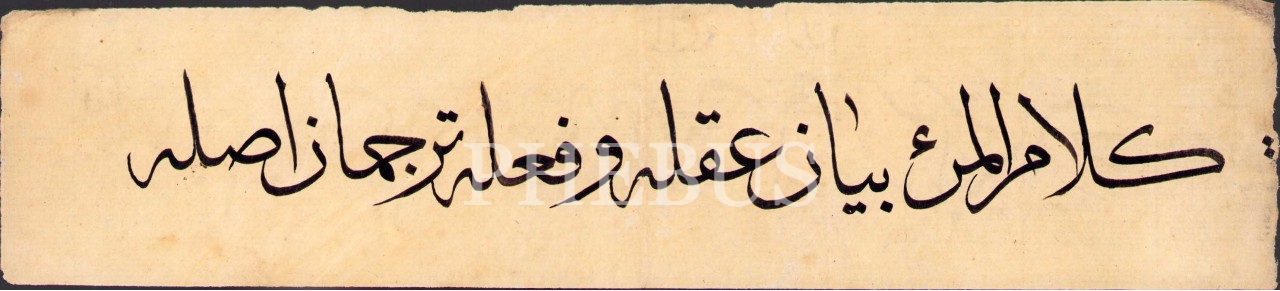 كلام المرئ بيان عقله وفعله ترجمان اصله
PHEBUS